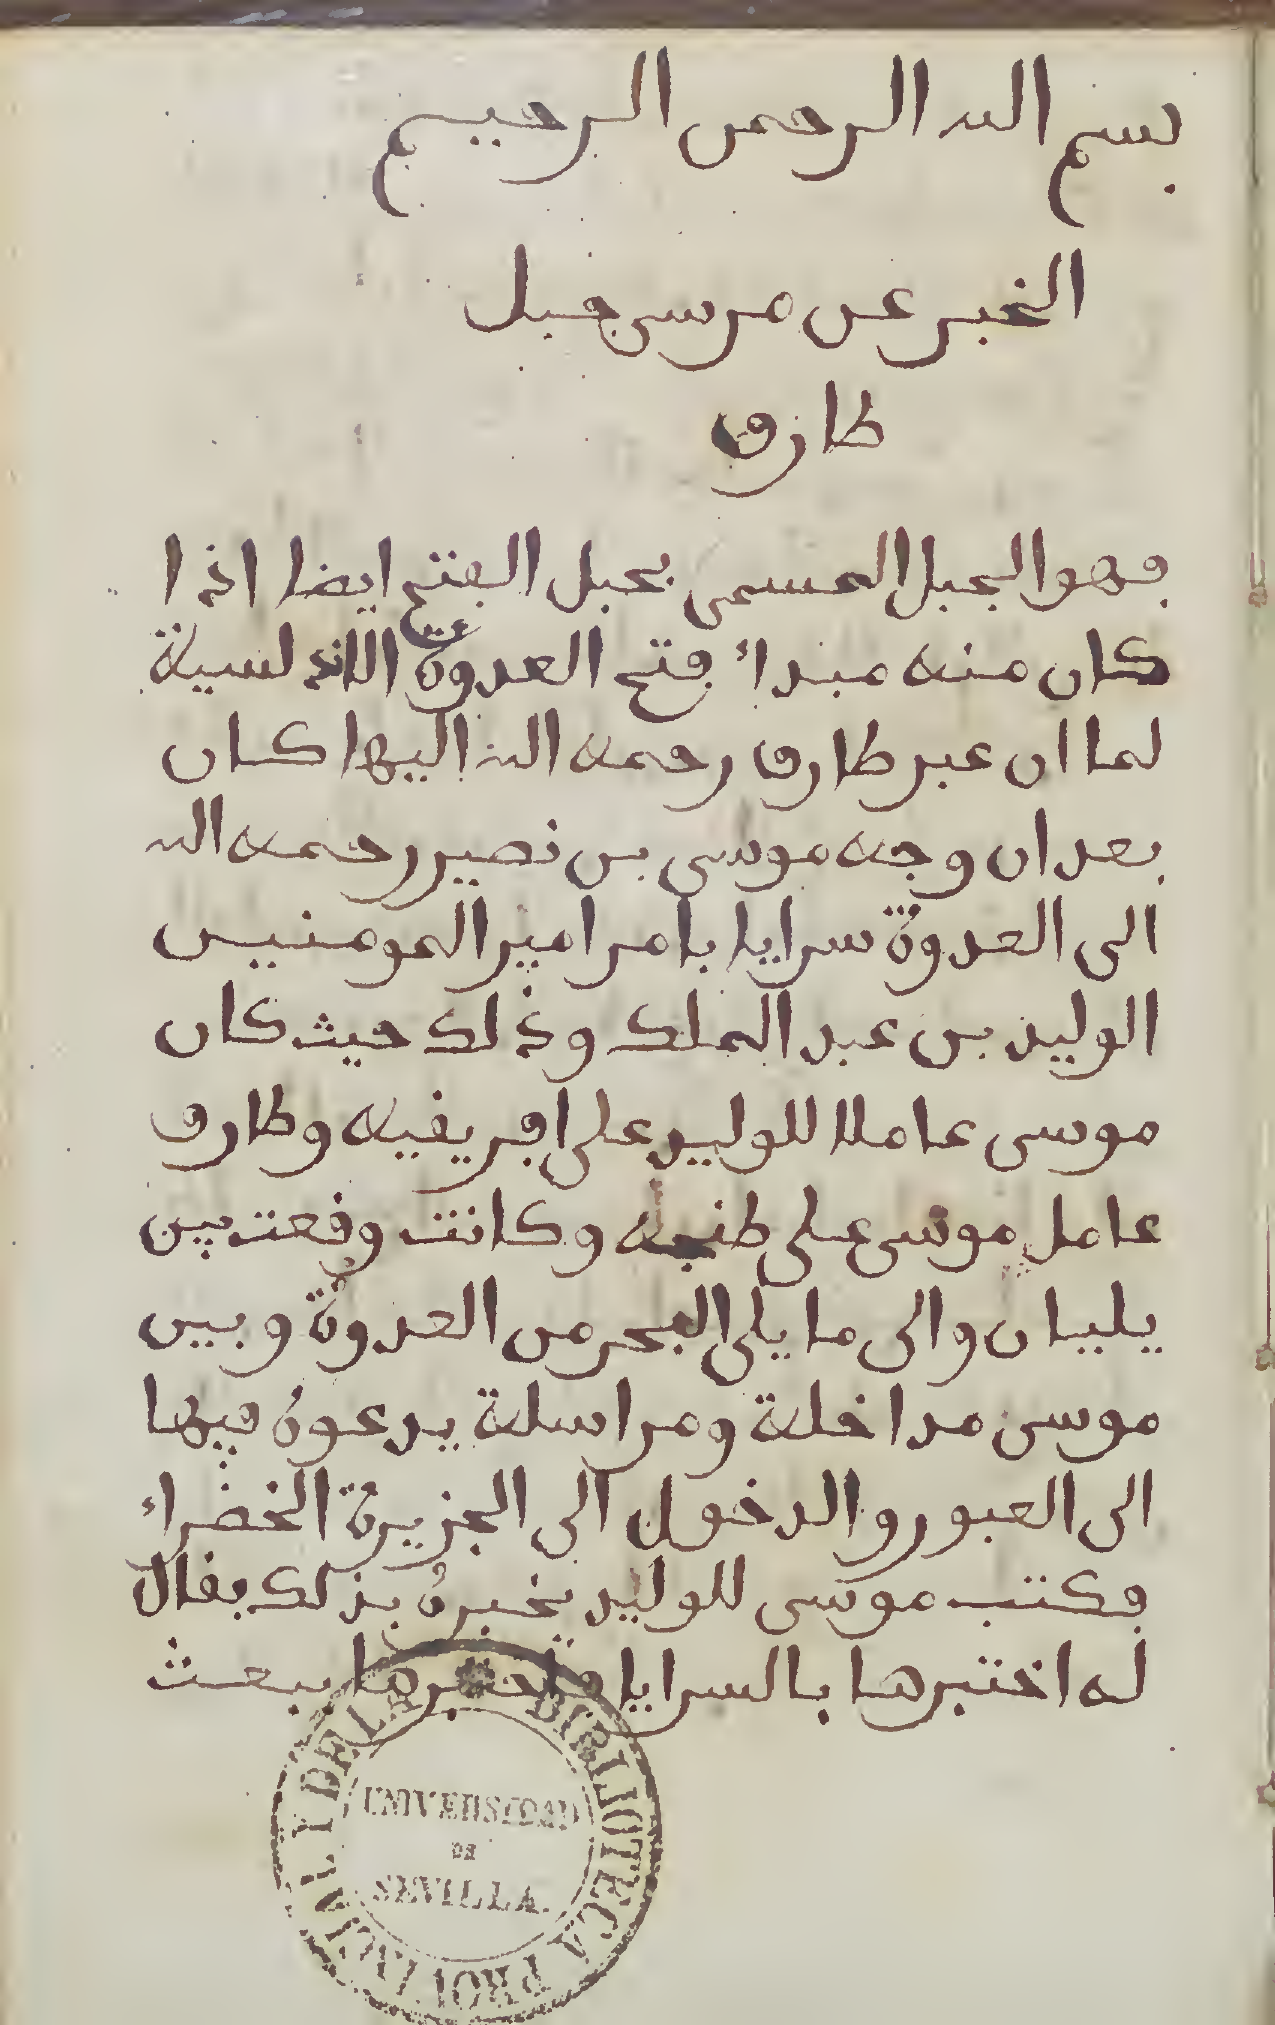 بسم الله الرحمن الرحيم
الخبر عن مرسى جبل
طارق
فهو الجبل المسمى بجبل الفتح ايضا اذا
كان منه مبداء فتح العدوة الاندلسية
لما ان عبر طارق رحمه الله اليها كان
بعد ان وجه موسى بن نصير رحمه الله
الى العدوة سرايا بامر امير المومنين
الوليد بن عبد الملك وذلك حيث كان
موسى عاملا للوليد على افريقيه وطارق
عامل موسى على طنجه وكانت وقعت بين
يليان والى ما يلى البحر من العدوة وبين
موسى مداخلة ومراسلة يدعوه فيها
الى العبور والدخول الى الجزيرة الخضراء
فكتب موسى للوليد يخبره بذلك فقال
له اختبرها بالسرايا ببعث
BIBLIOTECA PROVINCIAL Y DE LA
UNIVERSIDAD
DE
SEVILLA.